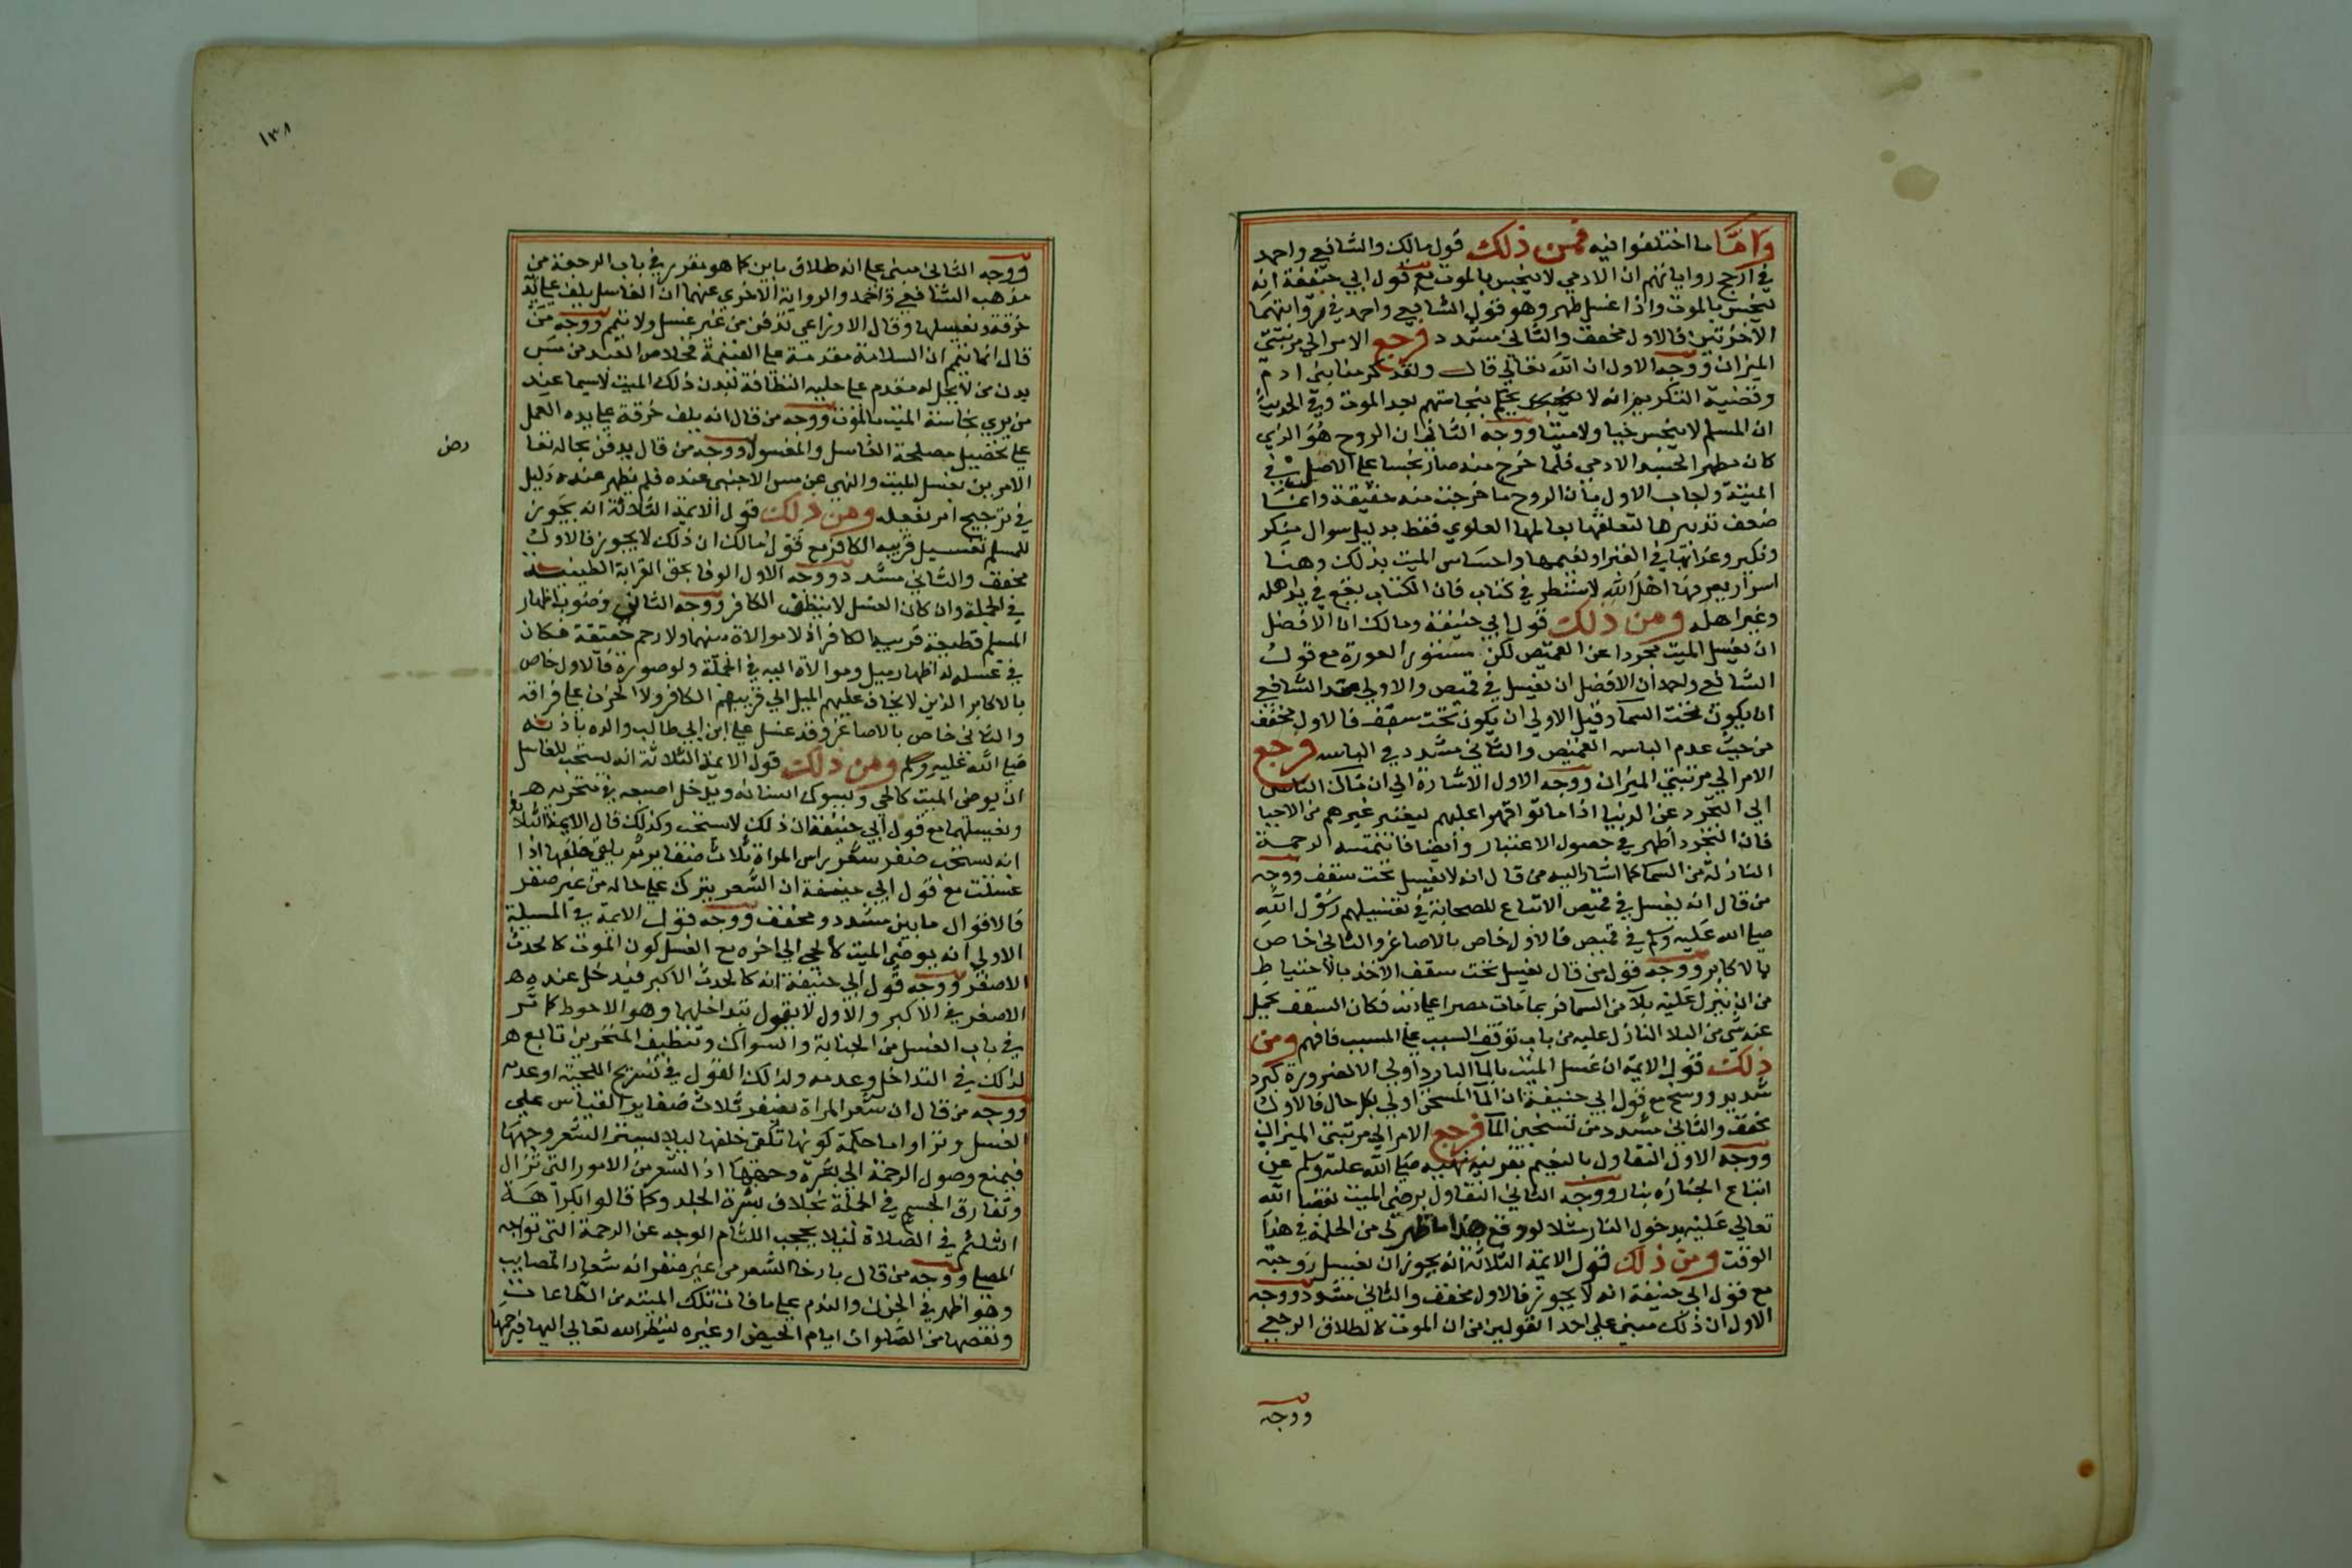 وامّا ما اختلفوا فيه فمن ذلك قول مالك والشافعي واحمد
في ارجح رواياتهم ان الادمي لا ينجس بالموت مع قول ابي حنيفة انه
ينجس بالموت واذا غسل طهر وهو قول الشافعي واحمد في روايتهما
الاخرتين فالاول مخفف والثاني مشدد فرجع الامر الي مرتبتي
الميزان ووجه الاول ان الله تعالي قال ولقد كرمنا بني ادم
وقضية التكريم انه لا يحكم بنجاستهم بعد الموت وفي الحديث
ان المسلم لا ينجس حيا ولا ميتا ووجه الثاني ان الروح هو الذي
كان مطهر الجسد الادمي فلما خرج منه صار نجسا علي الاصل في
الميتة واجاب الاول بان الروح ما خرجت منه حقيقة وانما
ضعف تدبيرها لتعلقها بعالمها العلوي فقط بدليل سوال منكر
ونكير وعذابها في القبر او نعيمها واحساس الميت بذلك وهنا
اسرار يعرفها اهل الله لا تسطر في كتاب فان الكتاب يقع في يد اهله
وغير اهله ومن ذلك قول ابي حنيفة ومالك ان الافضل
ان يغسل الميت مجردا عن القميص لكن مستور العورة مع قول
الشافعي واحمد ان الافضل ان يغسل في قميص والاولي عند الشافعي
ان يكون تحت السما وقيل الاولي ان يكون تحت سقف فالاول مخفف
من حيث عدم الباس القميص والثاني مشدد في الباسه فرجع
الامر الي مرتبتي الميزان ووجه الاول الاشارة الي ان مآل الناس
الي التجرد عن الدنيا اذا ماتوا قهرا عليهم ليعتبر غيرهم من الاحيا
فان التجرد اظهر في حصول الاعتبار وأيضا فانتمسه الرحمة
النازلة من السما كما اشار اليه من قال انه لا يغسل تحت سقف ووجه
من قال انه يغسل في قميص الاتباع للصحابة في تغسيلهم رسول الله
صلي الله عليه وسلم في قميص فالاول خاص بالاصاغر والثاني خاص
بالاكابر ووجه قول من قال يغسل تحت سقف الاخذ بالاحتياط
من ان ينزل عليه بلآ من السما فربما مات مصرا علي ذنب فكان السقف يحمل
عنه شي من البلا النازل عليه من باب توقف السبب علي المسبب فافهم ومن
ذلك قول الايمة ان غسل الميت بالمآ البارد اولي الا لضرورة كبرد
شديد ووسخ مع قول ابي حنيفة ان المآ المسخن اولي بكل حال فالاول
مخفف والثاني مشدد من تسخين المآ فرجع الامر الي مرتبتي الميزان
ووجه الاول التفاول بالنعيم بقرينة نهيه صلي الله عليه وسلم عن
اتباع الجنازه بنار ووجه الثاني التفاول برضي الميت بقضا الله
تعالي عليه بدخول النار مثلا لو وقع هذا ما ظهر لي من الحكمة في هذا
الوقت ومن ذلك قول الايمة الثلاثة انه يجوز ان يغسل زوجته
مع قول ابي حنيفة انه لا يجوز فالاول مخفف والثاني مشدد ووجه
الاول ان ذلك مبني علي احد القولين من ان الموت كالطلاق الرجعي
ووجه
١٣٨
ووجه الثاني مبني علي انه طلاق باين كما هو مقرر في باب الرجعة من
مذهب الشافعي واحمد والرواية الاخري عنهما ان الغاسل يلف علي يده
خرقة ويغسلها وقال الاوزاعي تدفن من غير غسل ولا تيمم ووجه من
قال انما تيمم ان السلامة مقدمة علي الغنيمة فخلاص العبد من مس
بدن من لا يحل له مقدم علي جلبه النظافة لبدن ذلك الميت لاسيما عند
من يري نجاسة الميت بالموت ووجه من قال انه يلف خرقة علي يده العمل
علي تحصيل مصلحة الغاسل والمغسول ووجه من قال يدفن بحاله تعا
رض
الامرين بغسل الميت والنهي عن مس الاجنبي عنده فلم يظهر عنده دليل
في ترجيح امر يفعله ومن ذلك قول الايمة الثلاثة انه يجوز
للمسلم تغسيل قريبه الكافر مع قول مالك ان ذلك لا يجوز فالاول
مخفف والثاني مشدد ووجه الاول الوفا بحق القرابة الطينية
في الجملة وان كان الغسل لا ينظف الكافر ووجه الثاني وجوب اظهار
المسلم قطيعة قريبه الكافر اذ لا موالاة بينهما ولا رحم حقيقة فكان
في غسله له اظهار ميل وموالاة اليه في الجملة ولو صورة فالاول خاص
بالاكابر الذين لا يخاف عليهم الميل الي قريبهم الكافر ولا الحزن علي فراقه
والثاني خاص بالاصاغر وقد غسل علي ابن ابي طالب والده باذنه
صلي الله عليه وسلم ومن ذلك قول الايمة الثلاثة انه يستحب للغاسل
ان يوضي الميت كالحي ويسوك اسنانه ويدخل اصبعه في منخريه
ويغسلهما مع قول ابي حنيفة ان ذلك لا يستحب وكذلك قال الايمة الثلاثة
انه يستحب ضفر شعر راس المراة ثلاث ضفاير ثم يلقي خلفها اذا
غسلت مع قول ابي حنيفة ان الشعر يترك علي حاله من غير ضفر
فالاقوال ما بين مشدد ومخفف ووجه قول الايمة في المسيلة
الاولي انه يوضي الميت كالحي الي اخره مع الغسل كون الموت كالحدث
الاصغر ووجه قول ابي حنيفة انه كالحدث الاكبر فيدخل عنده
الاصغر في الاكبر والاول لا يقول بتداخلهما وهو الاحوط كما مر
في باب الغسل من الجنابة والسواك وتنظيف المنخرين تابع
لذلك في التداخل وعدمه ولذلك القول في تسريح اللحية او عدمه
ووجه من قال ان شعر المراة يضفر ثلاث ضفاير القياس علي
الغسل وترا واما حكمة كونها تلقي خلفها ليلا يستر الشعر وجهها
فيمنع وصول الرحمة الي بشرة وجهها اذ الشعر من الامور التي تزال
وتفارق الجسم في الجملة بخلاف بشرة الجلد وكما قالوا بكراهة
التلثم في الصلاة ليلا يحجب اللثام الوجه عن الرحمة التي تواجه
المصلي ووجه من قال بارخا الشعر من غير ضفر انه شعار المصايب
وهو اظهر في الحزن والندم علي ما فات تلك الميتة من الطاعات
ونقصها من الصلوات ايام الحيض او غيره لينظر الله تعالي اليها فيرحمها